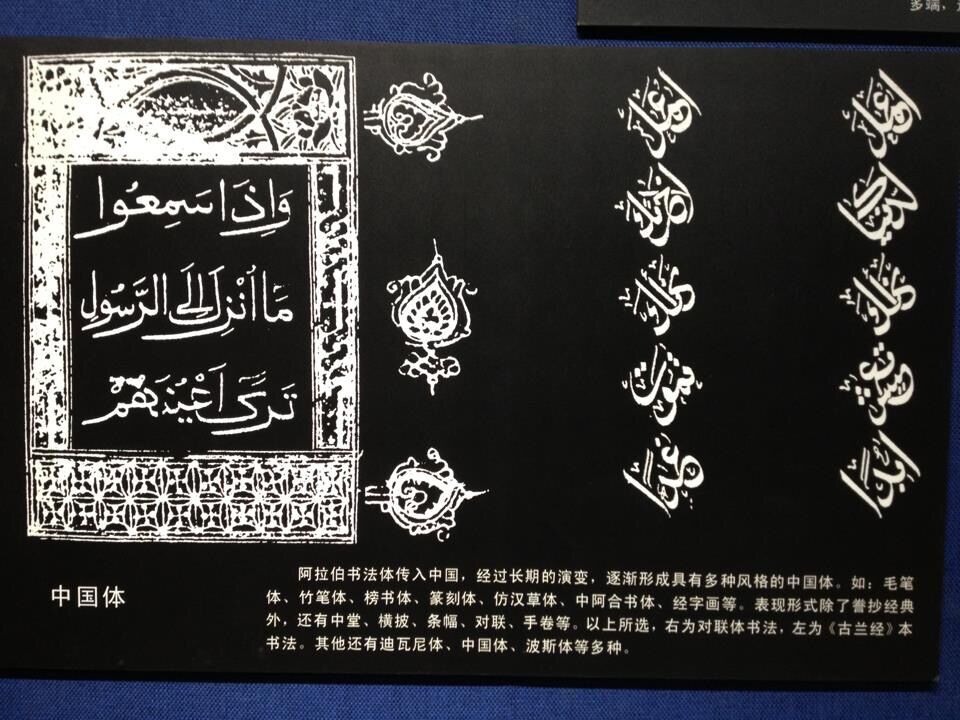 多端，
وَاِذَا سَمِعُوا
مَا اُنْزِلَ اِلَى الرَّسُولِ
تَرَى اَعْيُنَهُمْ
اعمل
لدنياك
كأنك
تعيش
ابدا
اعمل
لآخرتك
كأنك
تموت
غدا
中国体
阿拉伯书法体传入中国，经过长期的演变，逐渐形成具有多种风格的中国体。如：毛笔
体、竹笔体、榜书体、篆刻体、仿汉草体、中阿合书体、经字画等。表现形式除了誊抄经典
外，还有中堂、横披、条幅、对联、手卷等。以上所选，右为对联体书法，左为《古兰经》本
书法。其他还有迪瓦尼体、中国体、波斯体等多种。